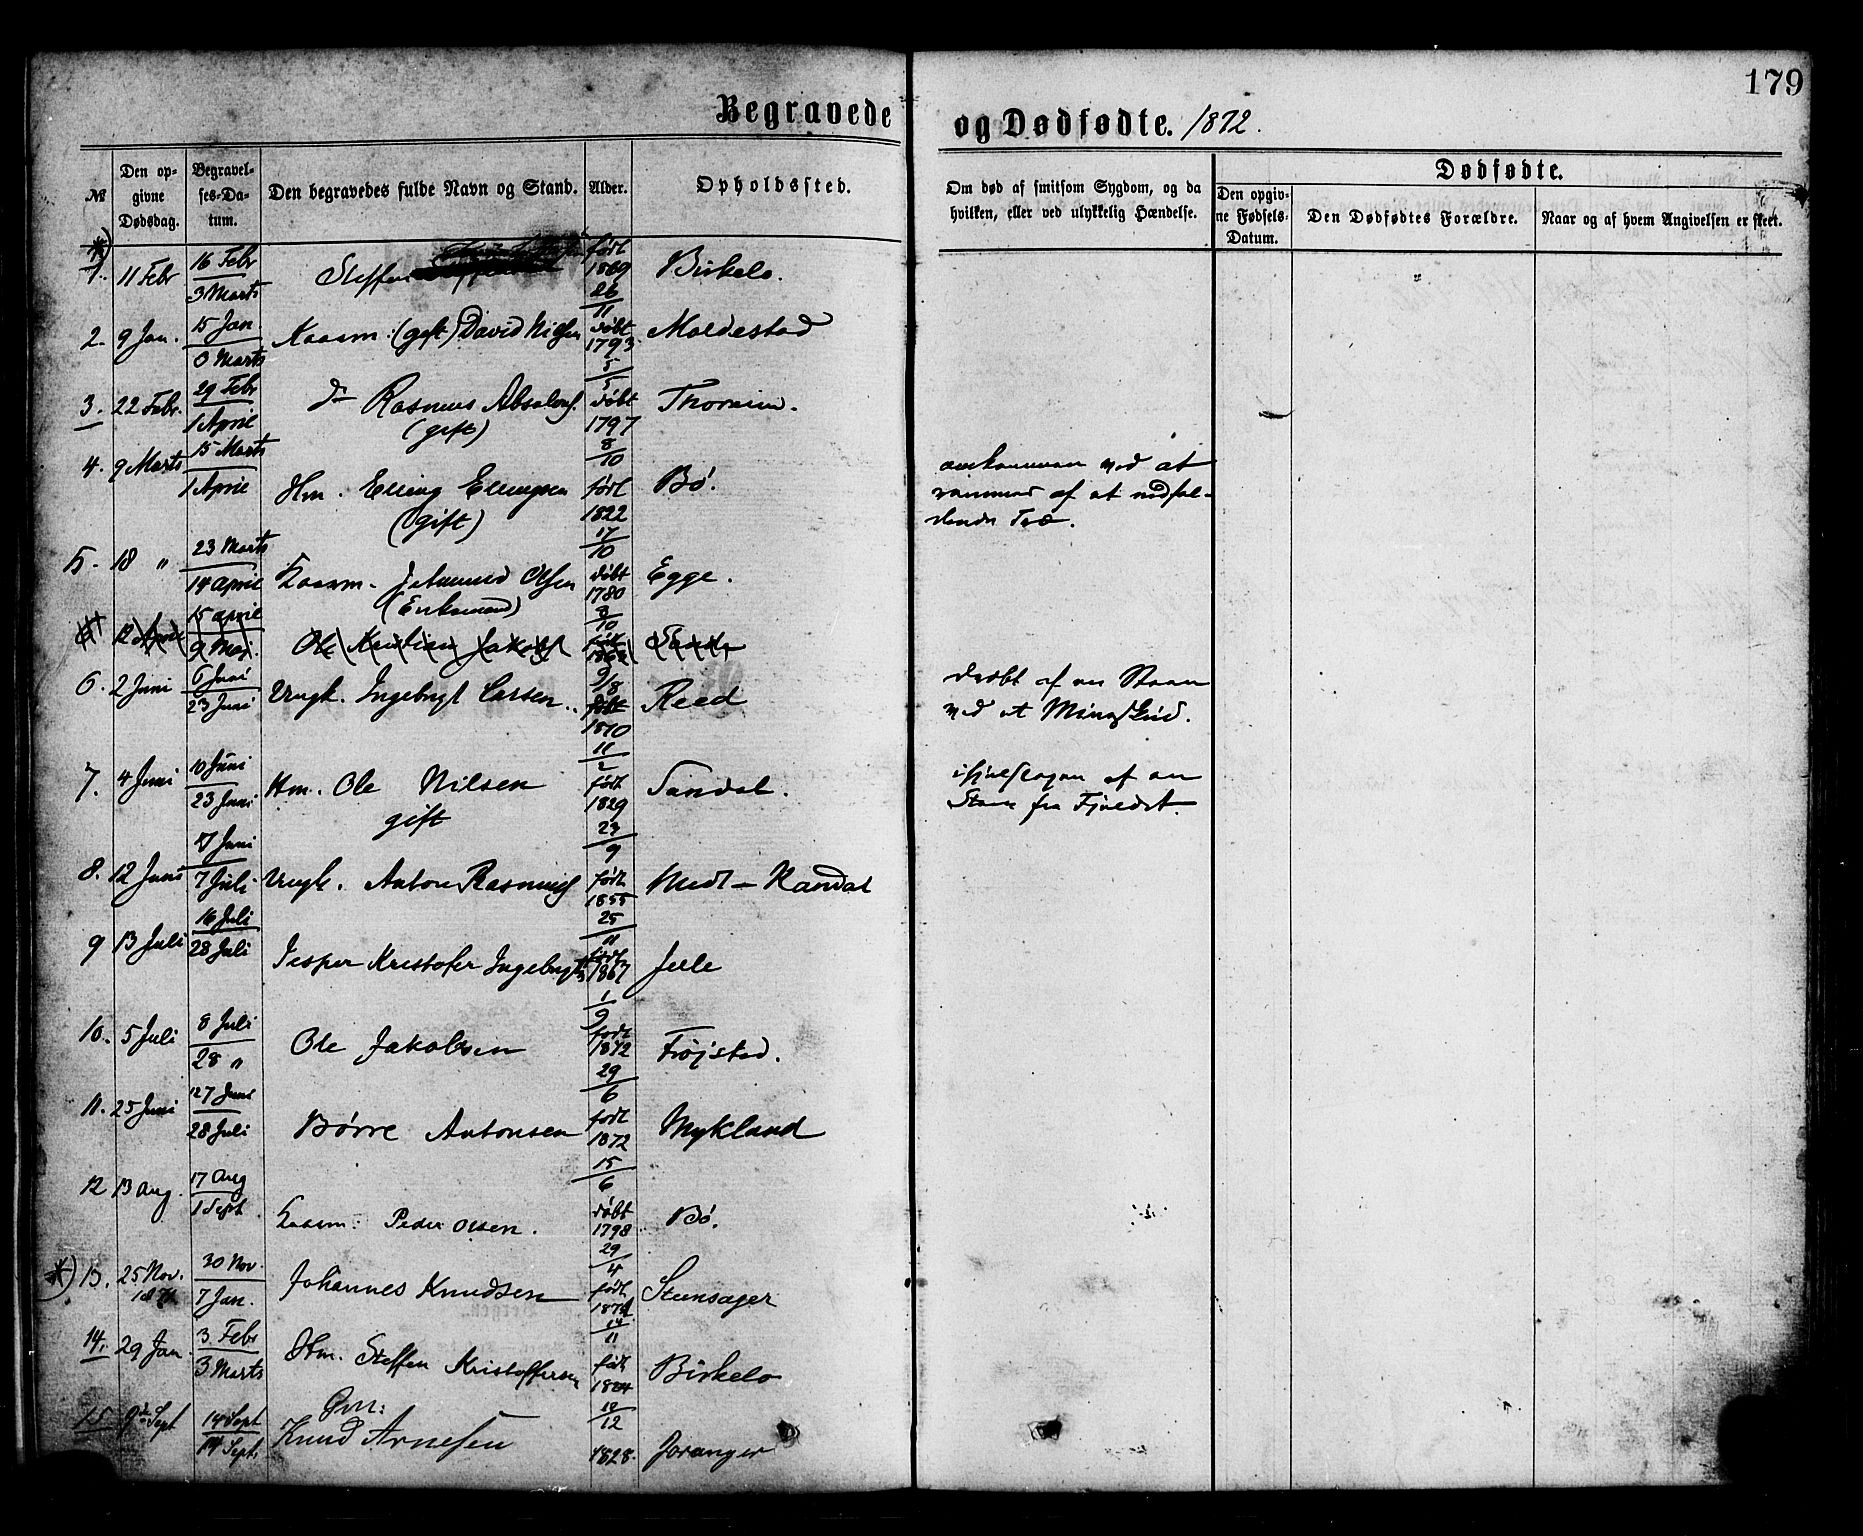 179
Begravede og Dødfødte. 1872.
№
Den opgivne Dødsdag.
Begravelses-Datum.
Den begravedes fulde Navn og Stand.
Alder.
Opholdssted.
Om død af smitsom Sygdom, og da hvilken, eller ved ulykkelig Hændelse.
Dødfødte.
Den opgivne Fødsels-Datum.
Den Dødfødtes Forældre.
Naar og af hvem Angivelsen er skeet.
*) 1. 11 Febr 16 Febr 3 Marts Steffen født 1869 26/11 Birkelo.
2. 9 Jan. 15 Jan. 3 Marts Kaarm: (gift) David Nilsen døbt 1793 5/5 Moldestad
3. 22 Febr. 29 Febr 1 April do Rasmus Absalons. (gift) døbt 1797 8/10 Thoreim.
4. 9 Marts 15 Marts 1 April Hm. Elling Ellingsen (gift) født 1822 17/10 Bø. omkommen ved at rammes af et nedfaldende Træ.
5. 18 " 23 Marts 14 April Kaarm. Johannes Olsen (Enkemand) døbt 1780 3/10 Egge.
12 April 15 April 9 Mai. Ole Kristian Jakobs født 9/8 Sande
6. 2 Juni 6 Juni 23 Juni Ungk. Ingebrigt Larsen født 11/2 Reed dræbt af en Steen ved et Mineskud.
7. 4 Juni 10 Juni 23 Juni Hm. Ole Nilsen gift født 1829 23/9 Sandal. ihjelslagen af en Steen fra Fjeldet.
8. 12 Juni 17 Juni 7 Juli Ungk. Anton Rasmus født 1855 25/11 Medt-Kandal
9 13 Juli 16 Juli 28 Juli Jesper Kristofer Ingebrigts født 1867 1/9 Jelle
10. 5 Juli 8 Juli 28 " Ole Jakobsen født 1872 29/6 Frøjstad.
11. 25 Juni 27 Juni 28 Juli Børre Antonsen født 1872 15/6 Mykland
12 13 Aug. 17 Aug 1 Sept. Kaarm: Peder Olsen. døbt 1798 29/4 Bø.
*) 13. 25 Nov. 1871 30 Nov 7 Jan. Johannes Knudsen født 1871 14/11 Steensager
14. 29 Jan. 3 Febr 3 Marts Hm. Steffen Kristoffersen født 18/12 Birkelo
15 9de Sept 14 Sept 14 Sept. Gm: Knud Arnesen 1828. Joranger